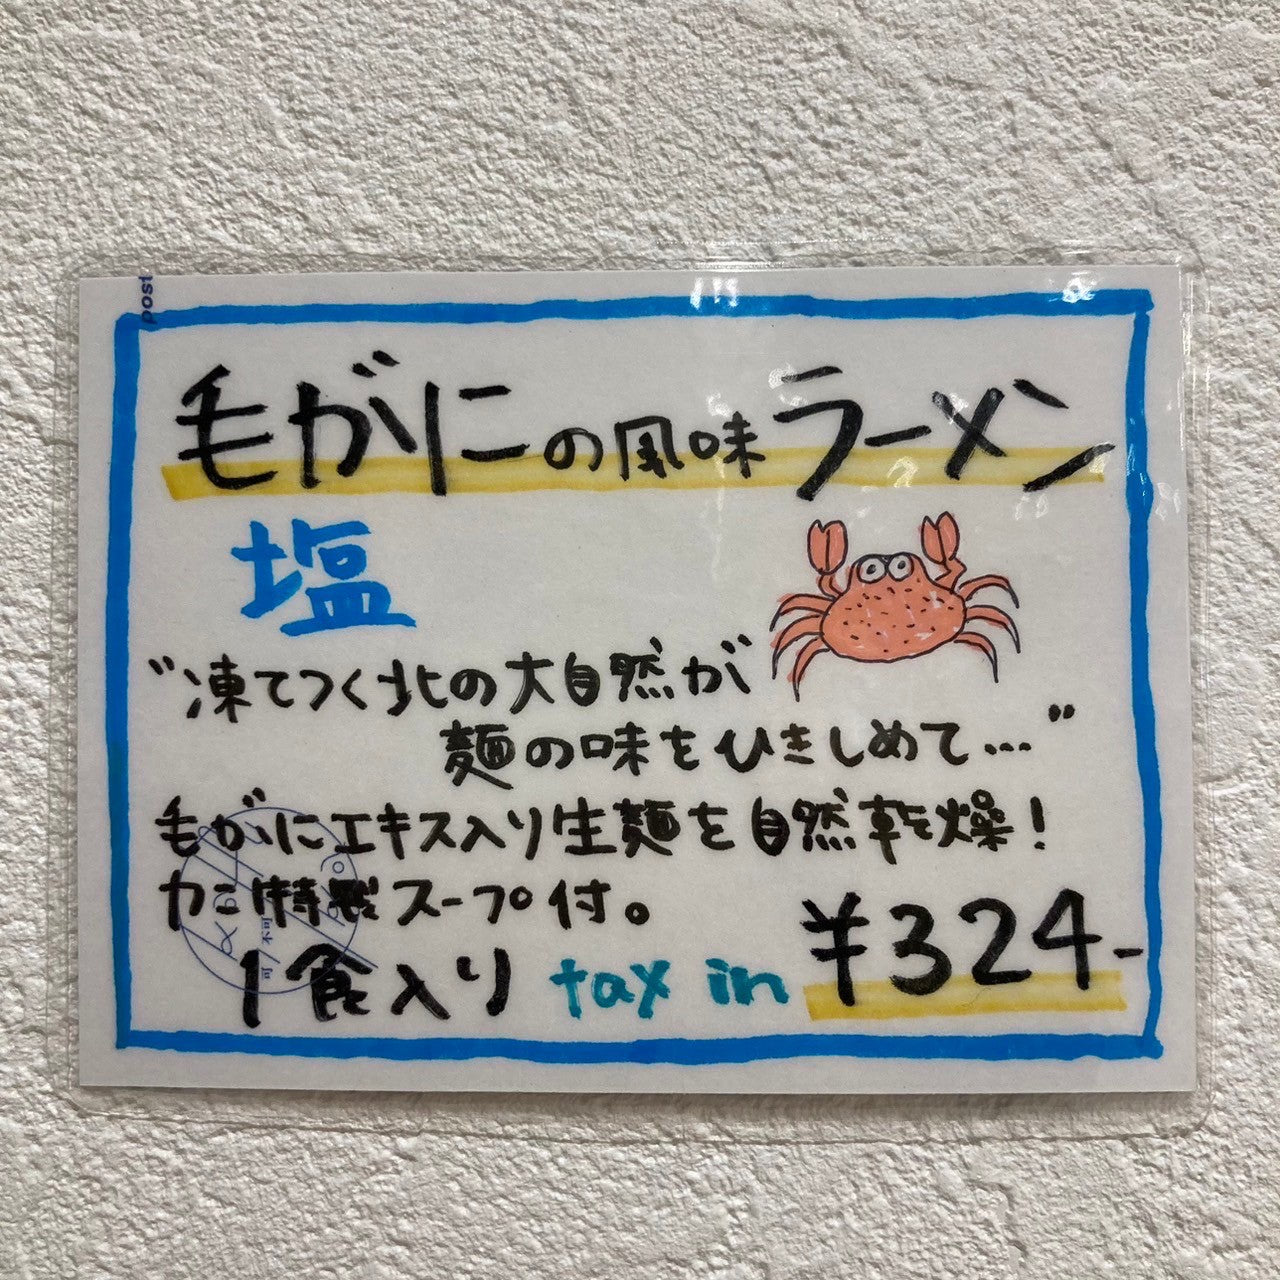 post
毛がにの風味ラーメン
塩
"凍てつく北の大自然が
麺の味をひきしめて..."
毛がにエキス入り生麺を自然乾燥!
カニ特製スープ付。
1食入り tax in ¥324-